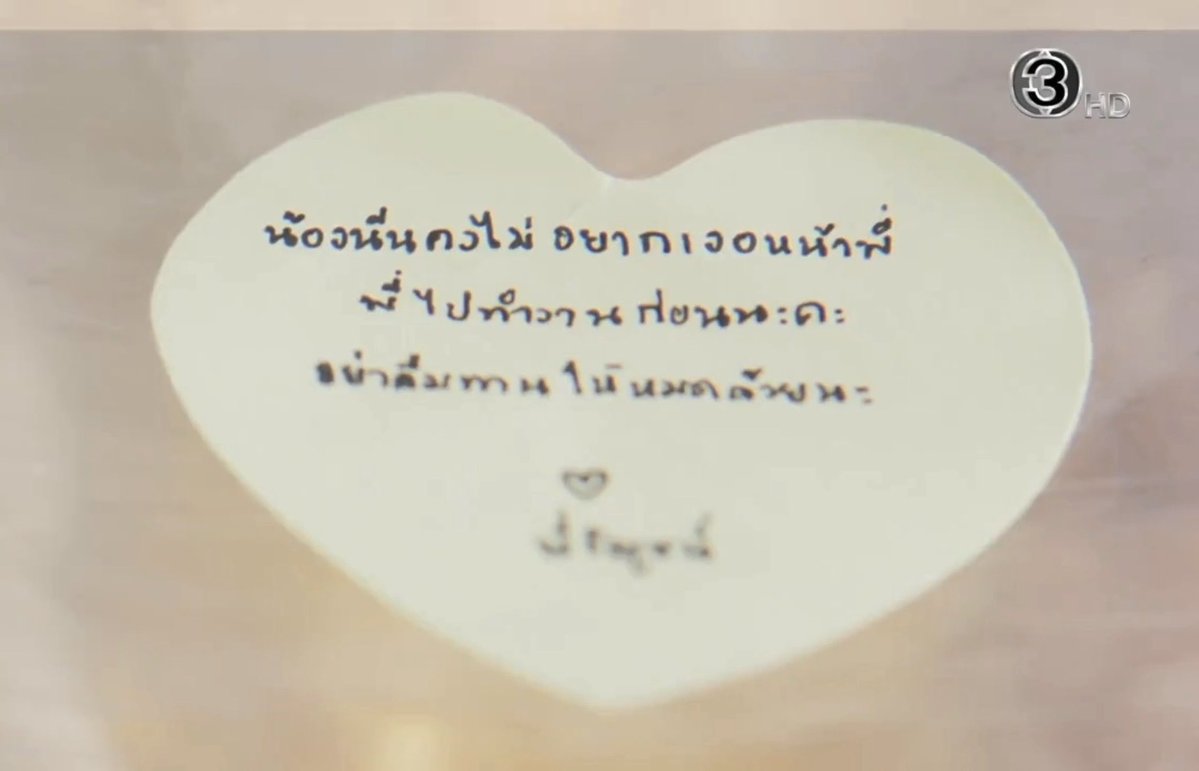 3 HD
น้องนีนคงไม่อยากเจอหน้าพี่
พี่ไปทำงานก่อนนะคะ
อย่าลืมทานให้หมดด้วยนะ
พี่